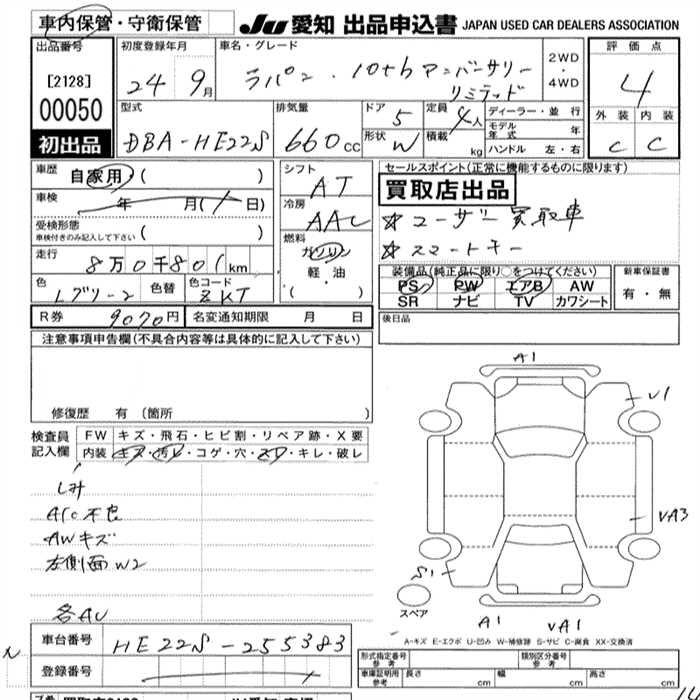 車内保管・守衛保管
JU 愛知 出品申込書 JAPAN USED CAR DEALERS ASSOCIATION
出品番号
[2128]
00050
初出品
初度登録年月
24 9月
車名・グレード
ラパン・10th アニバーサリー
リミテッド
2WD
・
4WD
評価点
4
外装 内装
C C
型式
DBA-HE22S
排気量
660cc
ドア 5
形状 W
定員 4人
積載 kg
ディーラー・並行
モデル年式 年
ハンドル 左・右
車歴 自家用・( )
車検 年 月( / 日)
受検形態
車検付きのみ記入して下さい ( )
走行
8万0千801km
色 Lグリーン
色替
色コード ZKT
シフト
AT
冷房
AAC
燃料
ガソリン
軽・油
( ・ )
セールスポイント(正常に機能するものに限ります)
買取店出品
☆ユーザー買取車
☆スマートキー
装備品(純正品に限り○をつけてください)
PS PW エアB AW
SR ナビ TV カワシート
新車保証書
有・無
R券 9070円
名変通知期限 月 日
後日品
注意事項申告欄(不具合内容等は具体的に記入して下さい)
修復歴 有 (箇所 )
検査員記入欄
FW キズ・飛石・ヒビ割・リペア跡・X要
内装 キズ・汚レ・コゲ・穴・スレ・キレ・破レ
A/C不良
AWキズ
左側面W2
各AU
A1
U1
UA3
S1
スペア
A1 UA1
A-キズ E-エクボ U-凹み W-補修跡 S-サビ C-腐食 XX-交換済
車台番号 HE22S-255383
登録番号
型式指定番号 参考
類別区分番号 参考
車庫証明用 参考 長さ cm 幅 cm 高さ cm